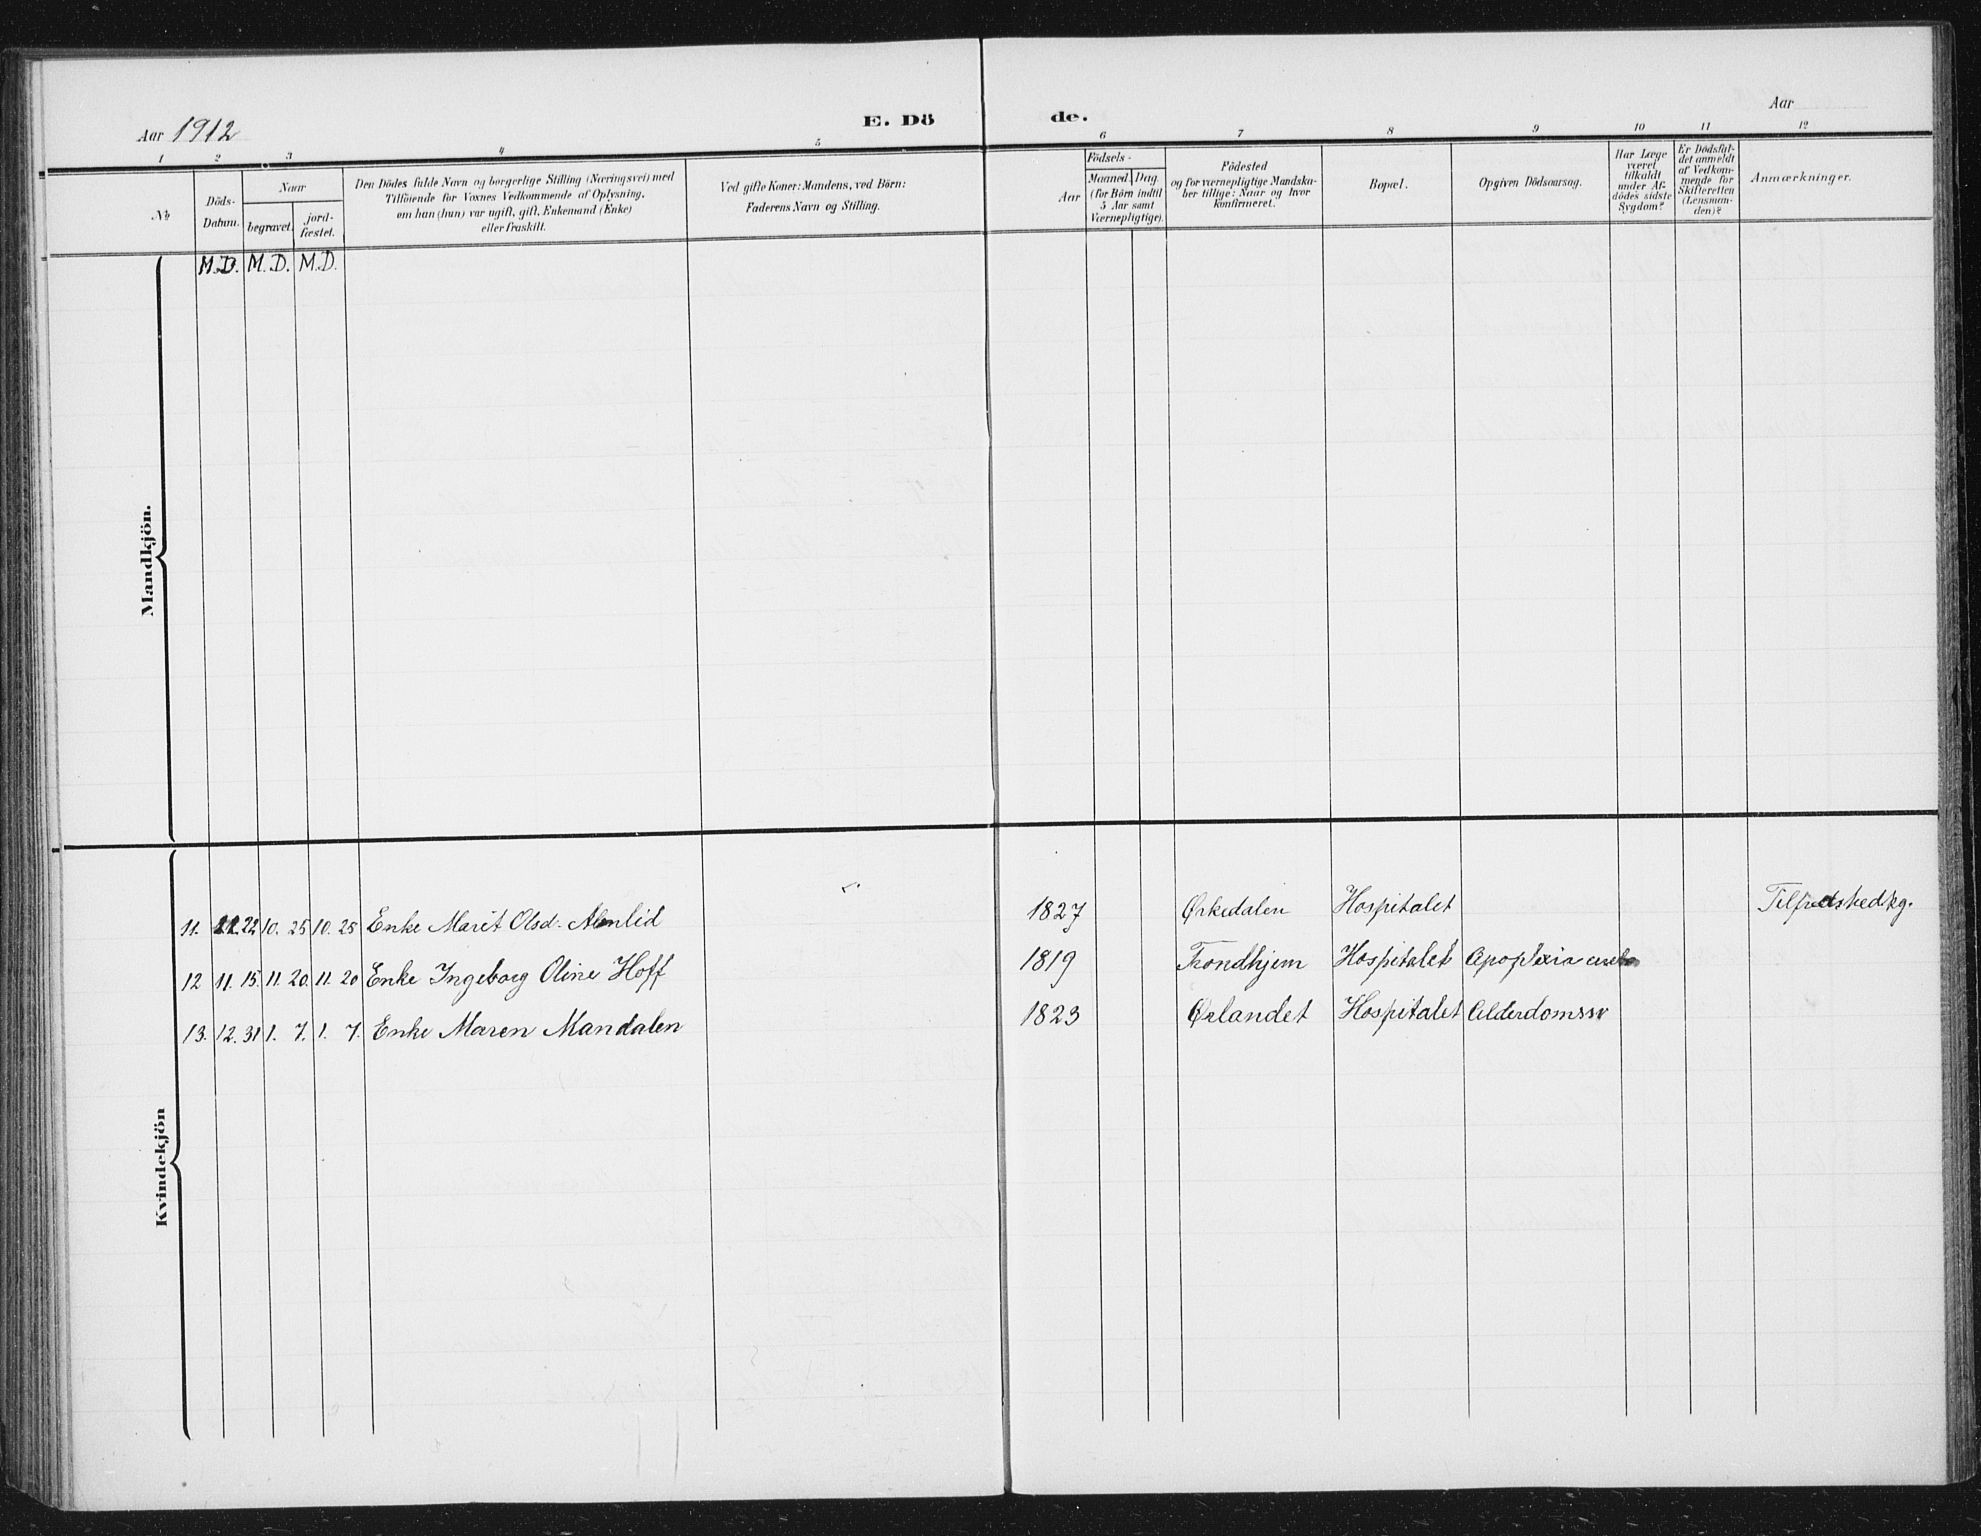 Aar 1912
E. Dö de.
Aar
1 2 3 4 5 6 7 8 9 10 11 12
No
Döds-
Datum.
Naar
begravet.
jord-
fæstet.
Den Dödes fulde Navn og borgerlige Stilling (Næringsvei) med
Tilföiende for Voxnes Vedkommende af Oplysning,
om han (hun) var ugift, gift, Enkemand (Enke)
eller fraskilt.
Ved gifte Koner: Mandens, ved Börn:
Faderens Navn og Stilling.
Födsels-
Aar
Maaned. Dag.
(for Börn indtil
5 Aar samt
Værnepligtige).
Födested
og for værnepligtige Mandska-
ber tillige: Naar og hvor
konfirmeret.
Bopæl.
Opgiven Dödsaarsag.
Har Læge
været
tilkaldt
under Af-
dödes sidste
Sygdom?
Er Dödsfal-
det anmeldt
af Vedkom-
mende for
Skifteretten
(Lensman-
den)?
Anmærkninger.
M.D. M.D. M.D.
Mandkjön.
Kvindekjön
11. 22 10. 25 10. 25 Enke Marit Olsd. 1827 Ørkedalen Hospitalet
12 11. 15. 11. 20. 11. 20 Enke Ingeborg Oline Hoff 1819 Trondhjem Hospitalet Apoplexia
13. 12. 31 1. 7. 1. 7. Enke Maren Mandalen 1823 Ørlandet Hospitalet Alderdomssv